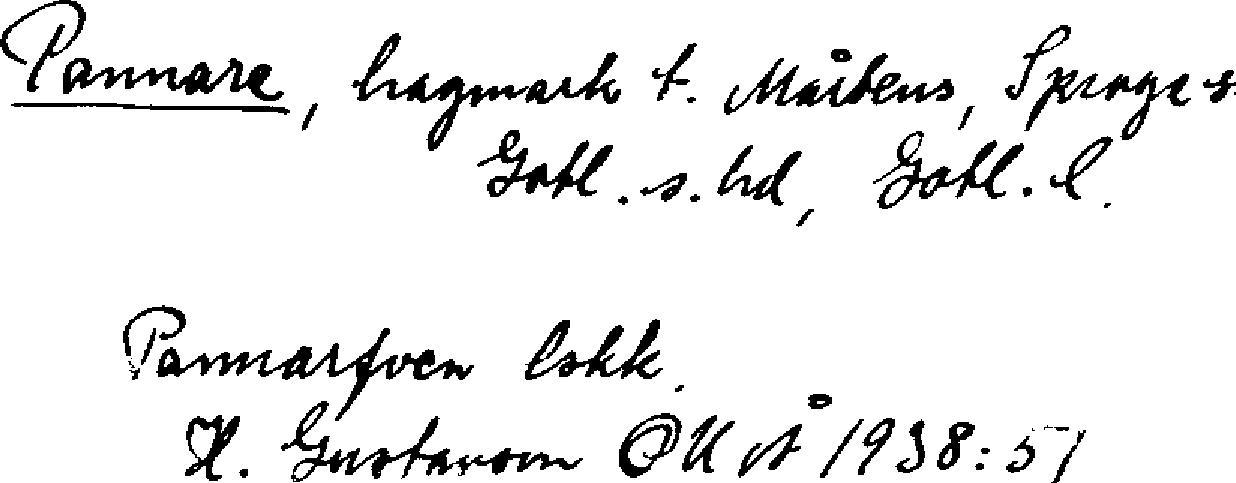 Pannare, hagmark t. Mårtens, Sproge s.
Gotl. s. hd, Gotl. l.
Pannarfven Eskk.
H. Gustavson OUÅ 1938:51